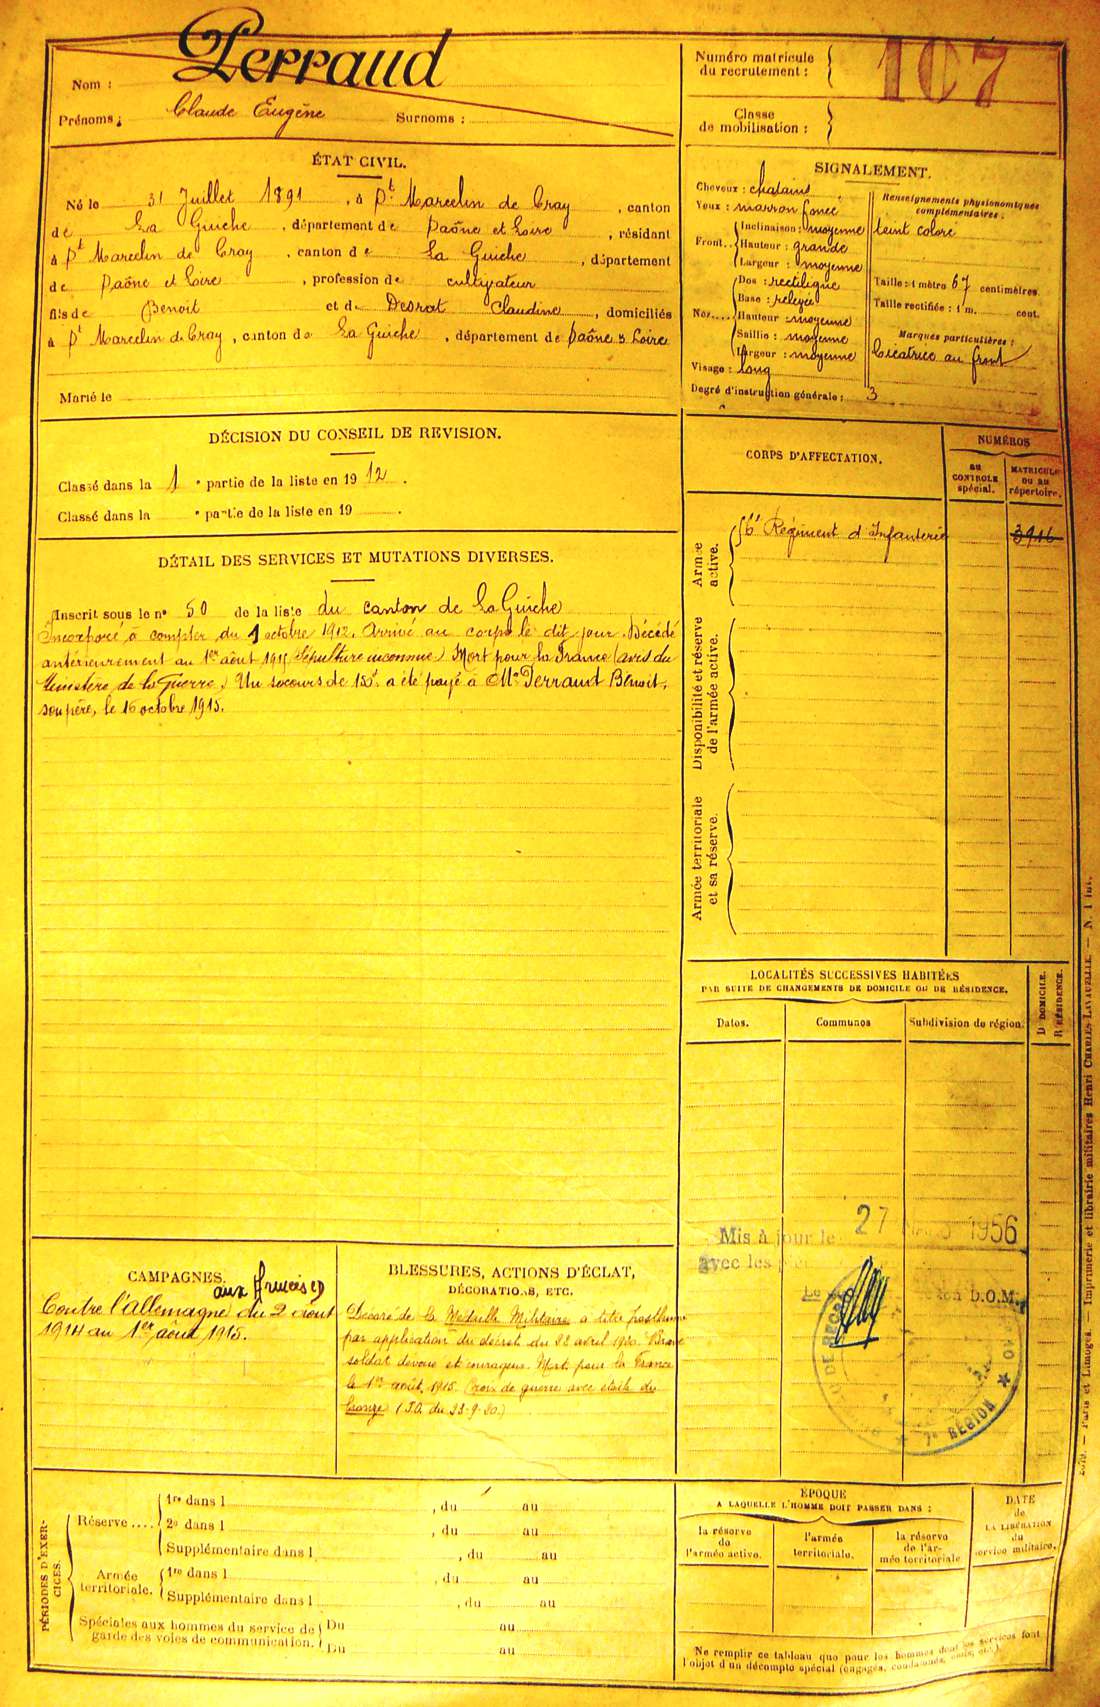 Nom : Perraud
Prénoms : Claude Eugène Surnoms :
Numéro matricule du recrutement : 107
Classe de mobilisation :
ÉTAT CIVIL.
Né le 31 Juillet 1891, à St Marcelin de Cray, canton
de La Guiche, département de Saône et Loire, résidant
à St Marcelin de Cray, canton de La Guiche, département
de Saône et Loire, profession de cultivateur
fils de Benoit et de Desrat Claudine, domiciliés
à St Marcelin de Cray, canton de La Guiche, département de Saône & Loire
Marié le
SIGNALEMENT.
Cheveux : chatains
Yeux : marron foncé
Front.. Inclinaison : moyenne
Hauteur : grande
Largeur : moyenne
Nez.... Dos : rectiligne
Base : relevée
Hauteur : moyenne
Saillie : moyenne
Largeur : moyenne
Visage : long
Renseignements physionomiques
complémentaires :
teint coloré
Taille : 1 mètre 67 centimètres.
Taille rectifiée : 1 m. cent.
Marques particulières :
Cicatrice au front
Degré d'instruction générale : 3
DÉCISION DU CONSEIL DE REVISION.
Classé dans la 1 e partie de la liste en 1912.
Classé dans la e partie de la liste en 19 .
DÉTAIL DES SERVICES ET MUTATIONS DIVERSES.
Inscrit sous le no 50 de la liste du canton de La Guiche
Incorporé à compter du 1 octobre 1912. Arrivé au corps le dit jour. Décédé
antérieurement au 1er août 1915 (Sépulture inconnue) Mort pour la France (avis du
Ministère de la Guerre.) Un secours de 150f. a été payé à Mr Perraud Benoit,
son père, le 16 octobre 1915.
CORPS D'AFFECTATION.
NUMÉROS
au CONTROLE spécial.
MATRICULE ou au répertoire.
Armée active.
56e Régiment d'Infanterie 3916
Disponibilité et réserve de l'armée active.
Armée territoriale et sa réserve.
LOCALITÉS SUCCESSIVES HABITÉES
PAR SUITE DE CHANGEMENTS DE DOMICILE OU DE RÉSIDENCE.
Dates. Communes Subdivision de région.
D DOMICILE.
R RÉSIDENCE.
Mis à jour le 27 MARS 1956
avec les
D.O.M.
7e RÉGION
CAMPAGNES.
aux Armées
Contre l'allemagne du 2 août
1914 au 1er août 1915.
BLESSURES, ACTIONS D'ÉCLAT,
DÉCORATIONS, ETC.
Décoré de la Médaille Militaire à titre posthume
par application du décret du 22 avril 1920. Brave
soldat dévoué et courageux. Mort pour la France
le 1er août 1915. Croix de guerre avec étoile de
bronze (J.O. du 23-9-20.)
PÉRIODES D'EXERCICES.
Réserve .... 1re dans l , du au
2e dans l , du au
Supplémentaire dans l , du au
Armée territoriale. 1re dans l , du au
Supplémentaire dans l , du au
Spéciales aux hommes du service de Du au
garde des voies de communication. Du au
ÉPOQUE
A LAQUELLE L'HOMME DOIT PASSER DANS :
la réserve de l'armée active.
l'armée territoriale.
la réserve de l'armée territoriale
DATE de LA LIBÉRATION du service militaire.
Ne remplir ce tableau que pour les hommes dont les services font
l'objet d'un décompte spécial (engagés, condamnés, omis, etc.).
Paris et Limoges. — Imprimerie et librairie militaires Henri CHARLES-LAVAUZELLE. —